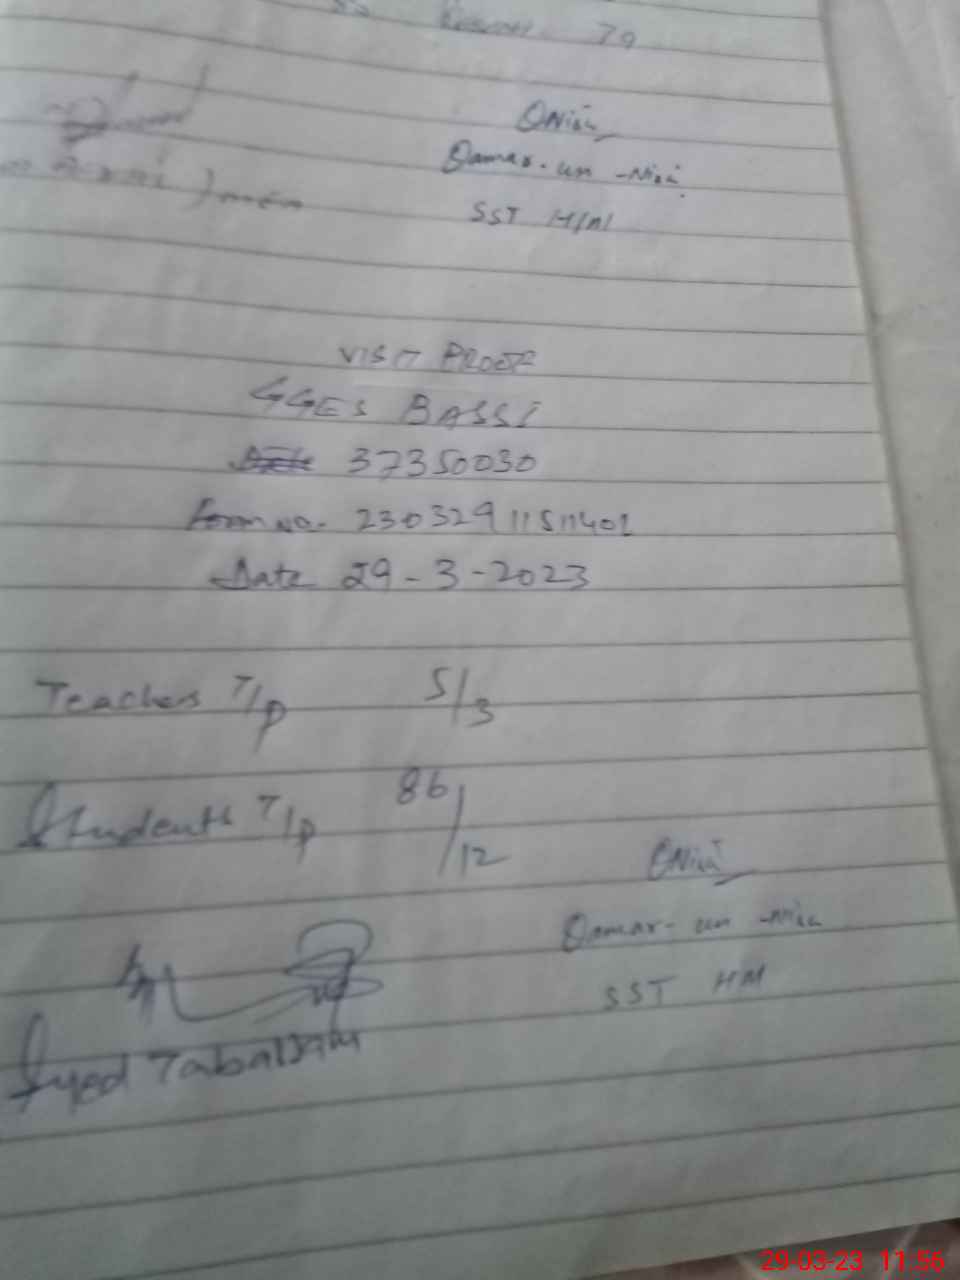 79
QNisa
Qamar-un-Nisa
SST HM
VISIT PROOF
GGES BASSI
37350030
Form no. 23032911511401
Date 29-3-2023
Teachers T/p 5/3
Students T/p 86/12
QNisa
Qamar-un-Nisa
SST HM
Syed Tabassam
29-03-23 11:56